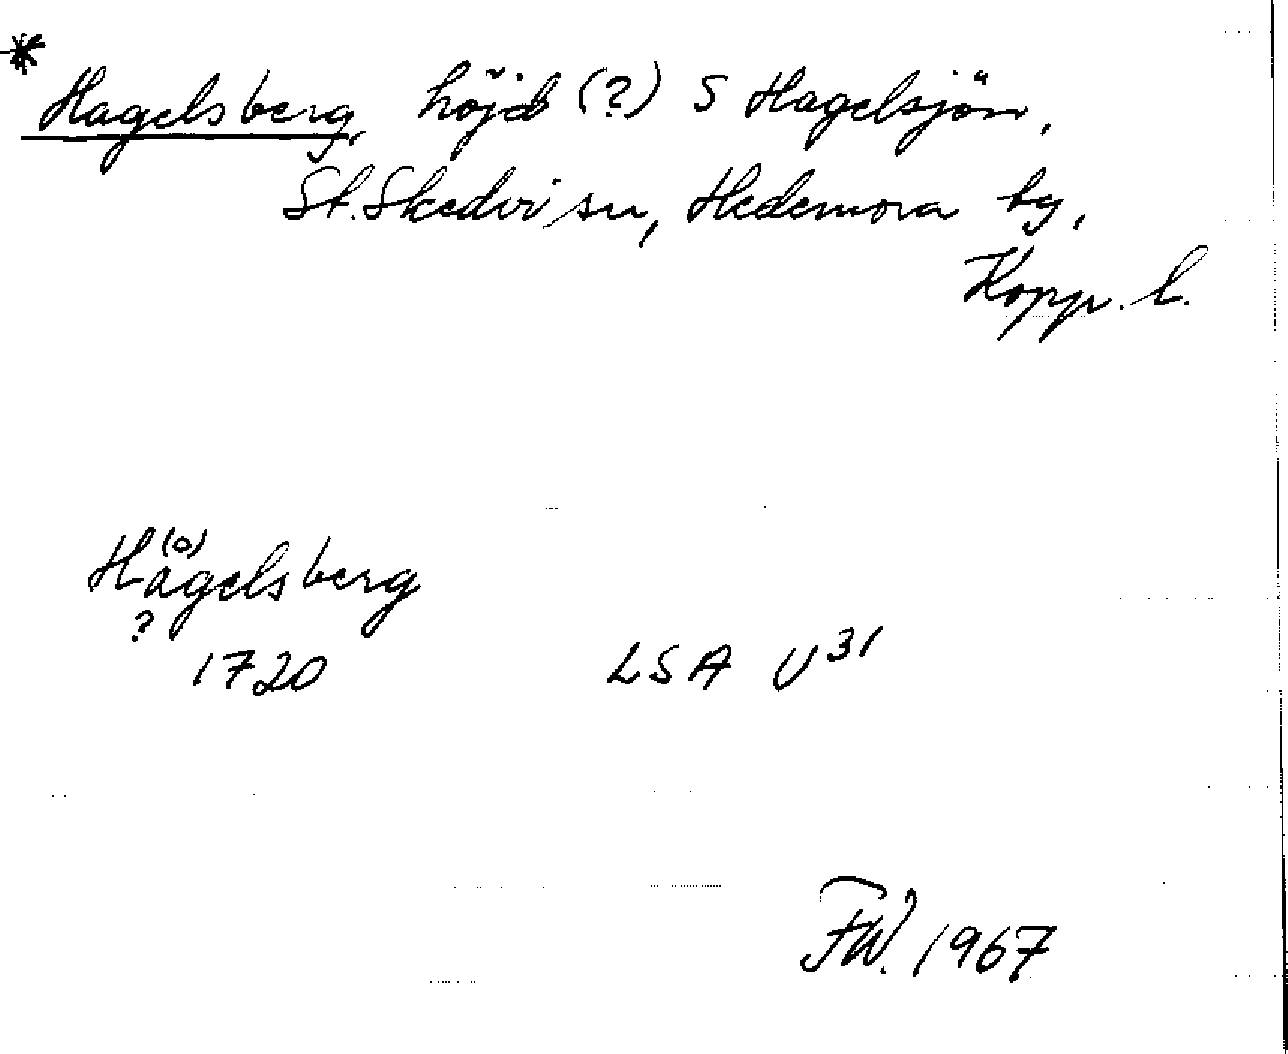 * Hagelsberg, höjd (?) S Hagelsjön,
St. Skedvi sn, Hedemora tg,
Kopp. l.
(o)
Hagelsberg
?
1720 LSA U31
FW. 1967